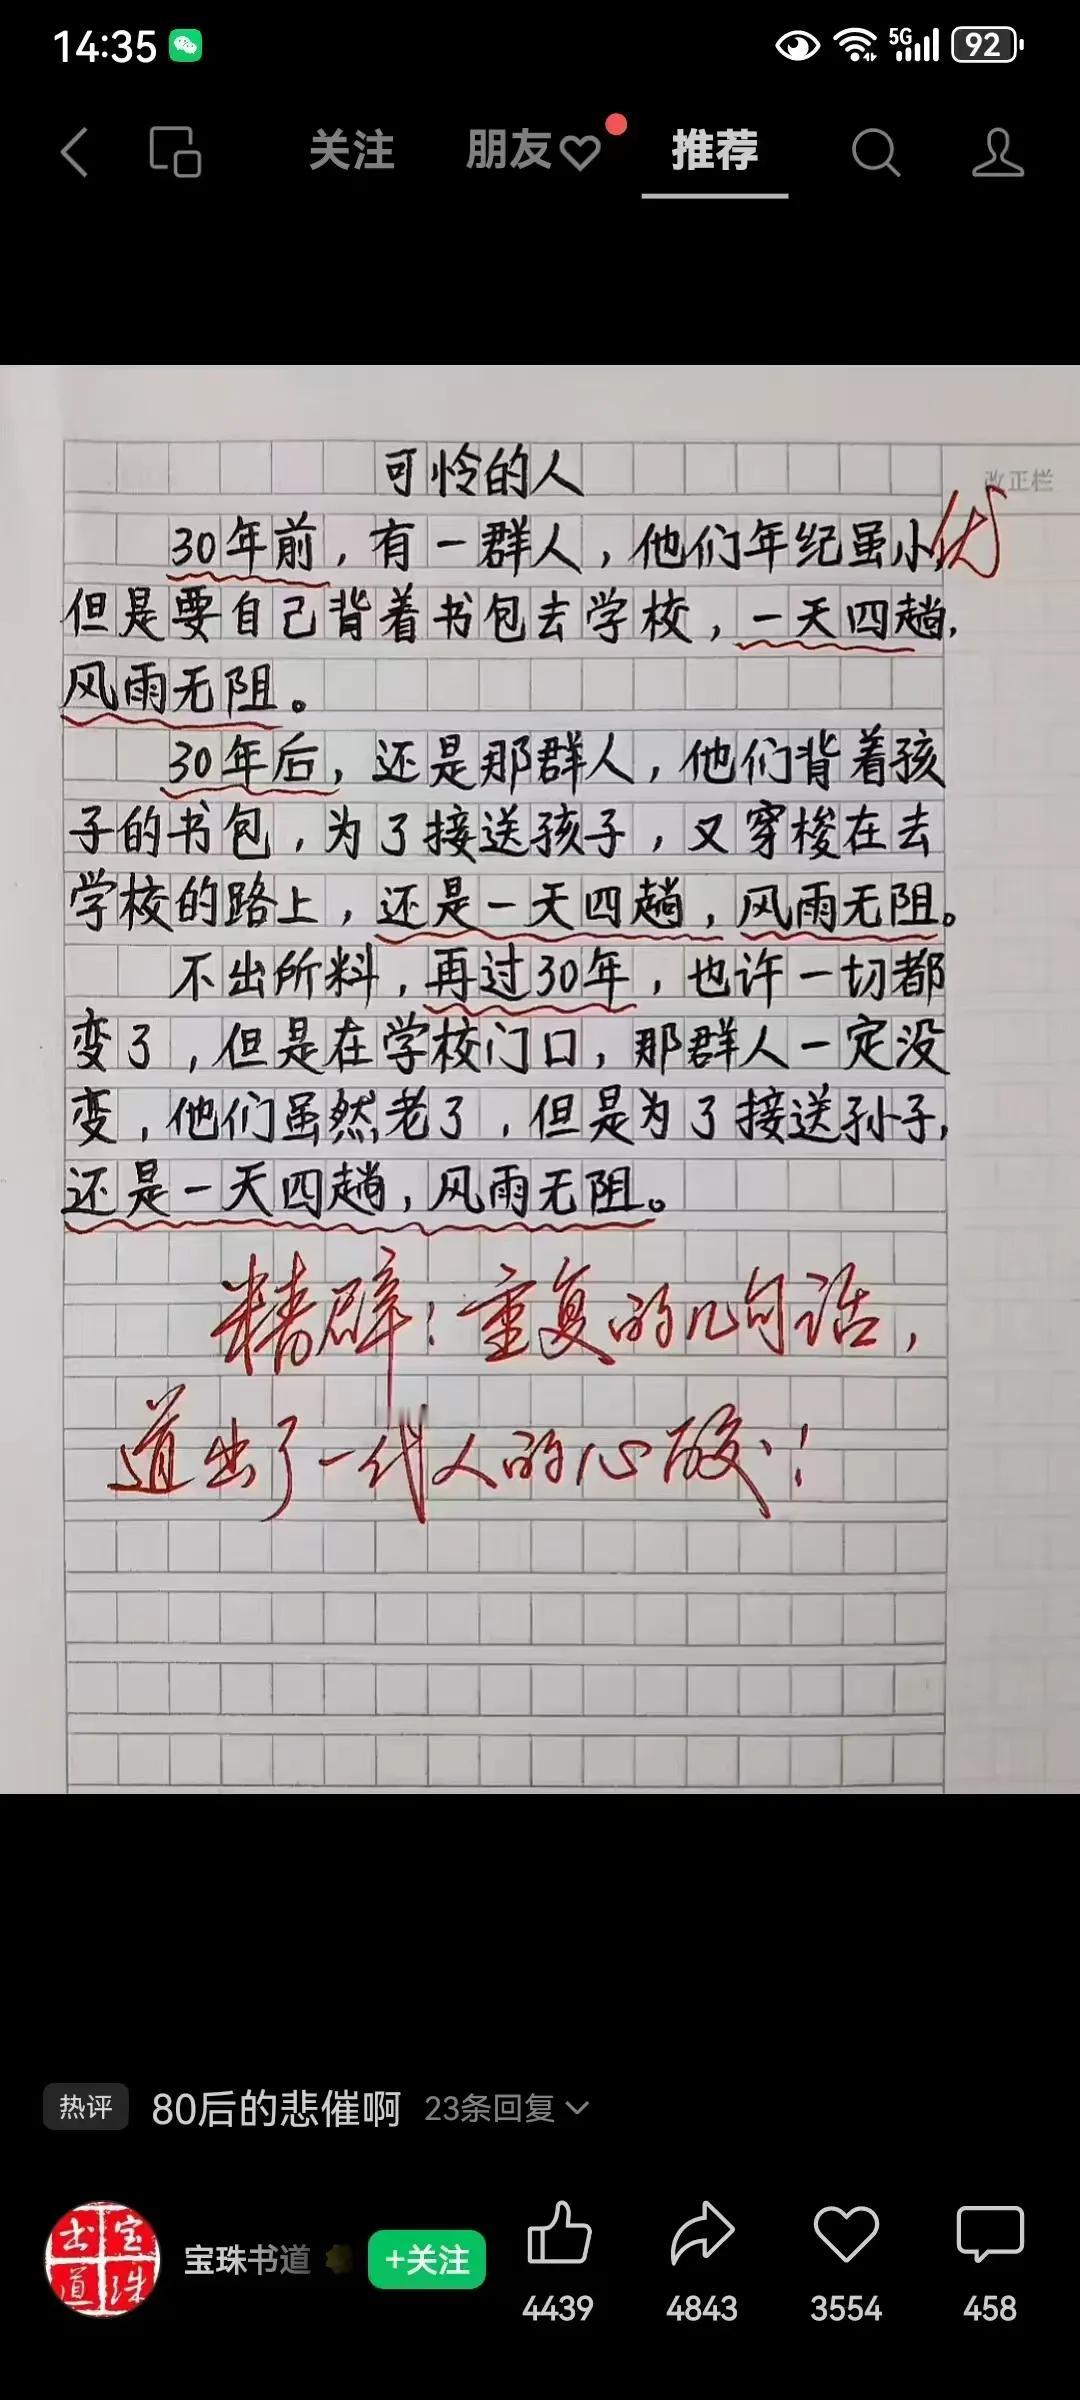 14:35
5G
92
关注 朋友 推荐
可怜的人
改正栏
30年前，有一群人，他们年纪虽小，
优
但是要自己背着书包去学校，一天四趟，
风雨无阻。
30年后，还是那群人，他们背着孩
子的书包，为了接送孩子，又穿梭在去
学校的路上，还是一天四趟，风雨无阻。
不出所料，再过30年，也许一切都
变了，但是在学校门口，那群人一定没
变，他们虽然老了，但是为了接送孙子，
还是一天四趟，风雨无阻。
精辟！重复的几句话，
道出了一代人的心酸！
热评 80后的悲催啊 23条回复
宝珠书道
宝珠书道 +关注
4439 4843 3554 458